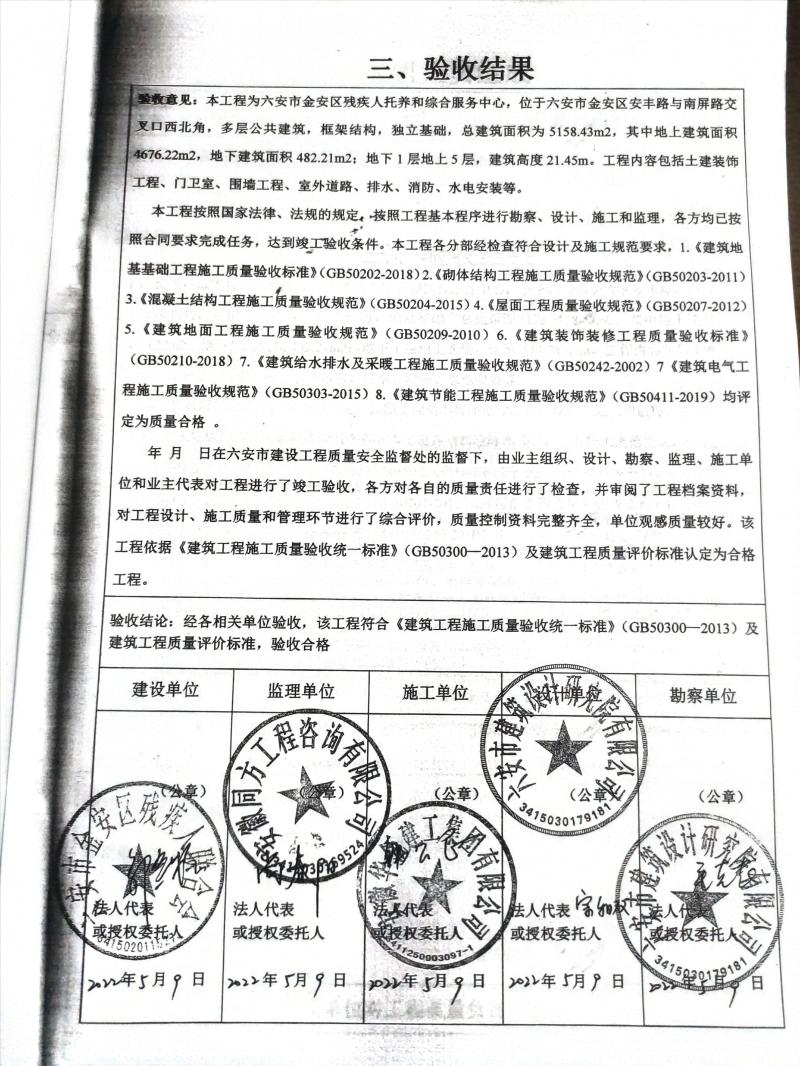 三、验收结果
验收意见：本工程为六安市金安区残疾人托养和综合服务中心，位于六安市金安区安丰路与南屏路交
叉口西北角，多层公共建筑，框架结构，独立基础，总建筑面积为 5158.43m2，其中地上建筑面积
4676.22m2，地下建筑面积 482.21m2；地下 1 层地上 5 层，建筑高度 21.45m。工程内容包括土建装饰
工程、门卫室、围墙工程、室外道路、排水、消防、水电安装等。
本工程按照国家法律、法规的规定，按照工程基本程序进行勘察、设计、施工和监理，各方均已按
照合同要求完成任务，达到竣工验收条件。本工程各分部经检查符合设计及施工规范要求，1.《建筑地
基基础工程施工质量验收标准》（GB50202-2018）2.《砌体结构工程施工质量验收规范》（GB50203-2011）
3.《混凝土结构工程施工质量验收规范》（GB50204-2015）4.《屋面工程质量验收规范》（GB50207-2012）
5.《建筑地面工程施工质量验收规范》（GB50209-2010）6.《建筑装饰装修工程质量验收标准》
（GB50210-2018）7.《建筑给水排水及采暖工程施工质量验收规范》（GB50242-2002）7《建筑电气工
程施工质量验收规范》（GB50303-2015）8.《建筑节能工程施工质量验收规范》（GB50411-2019）均评
定为质量合格 。
年 月 日在六安市建设工程质量安全监督处的监督下，由业主组织、设计、勘察、监理、施工单
位和业主代表对工程进行了竣工验收，各方对各自的质量责任进行了检查，并审阅了工程档案资料，
对工程设计、施工质量和管理环节进行了综合评价，质量控制资料完整齐全，单位观感质量较好。该
工程依据《建筑工程施工质量验收统一标准》（GB50300—2013）及建筑工程质量评价标准认定为合格
工程。
验收结论：经各相关单位验收，该工程符合《建筑工程施工质量验收统一标准》（GB50300—2013）及
建筑工程质量评价标准，验收合格
建设单位 监理单位 施工单位 设计单位 勘察单位
（公章） （公章） （公章） （公章） （公章）
安市金安区残疾人联合会
徽同方工程咨询有限公司
建工集团有限公司
3411250003097-1
六安市建筑设计研究院有限公司
3415030179181
六安市建筑设计研究院有限公司
3415030179181
法人代表 法人代表 法人代表 法人代表 法人代表
或授权委托人 或授权委托人 或授权委托人 或授权委托人 或授权委托人
2022年5月9日 2022年5月9日 2022年5月9日 2022年5月9日 2022年5月9日